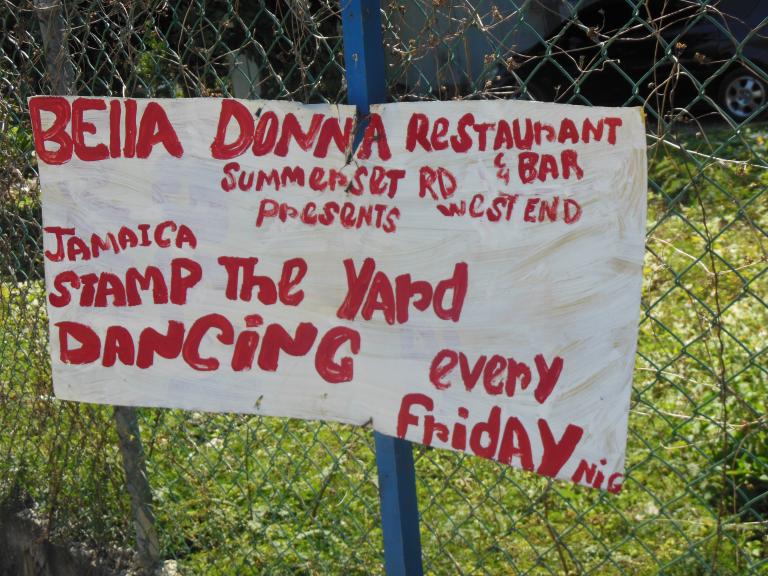 BEllA DONNA RESTAURANT
& BAR
SUMMERSET RD
PRESENTS WEST END
JAMAICA
STAMP The YARD
DANCING every
FRIDAY NiG